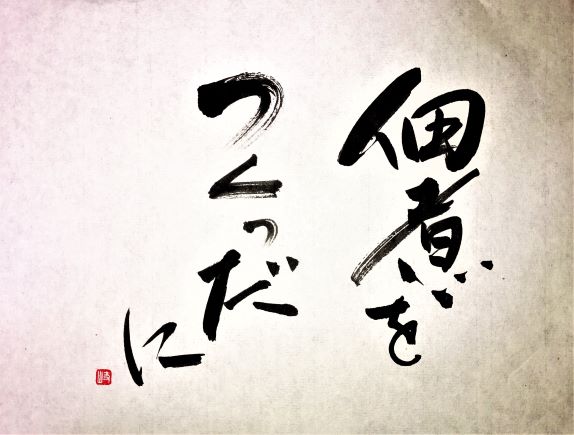 佃煮を
つくっだ
に